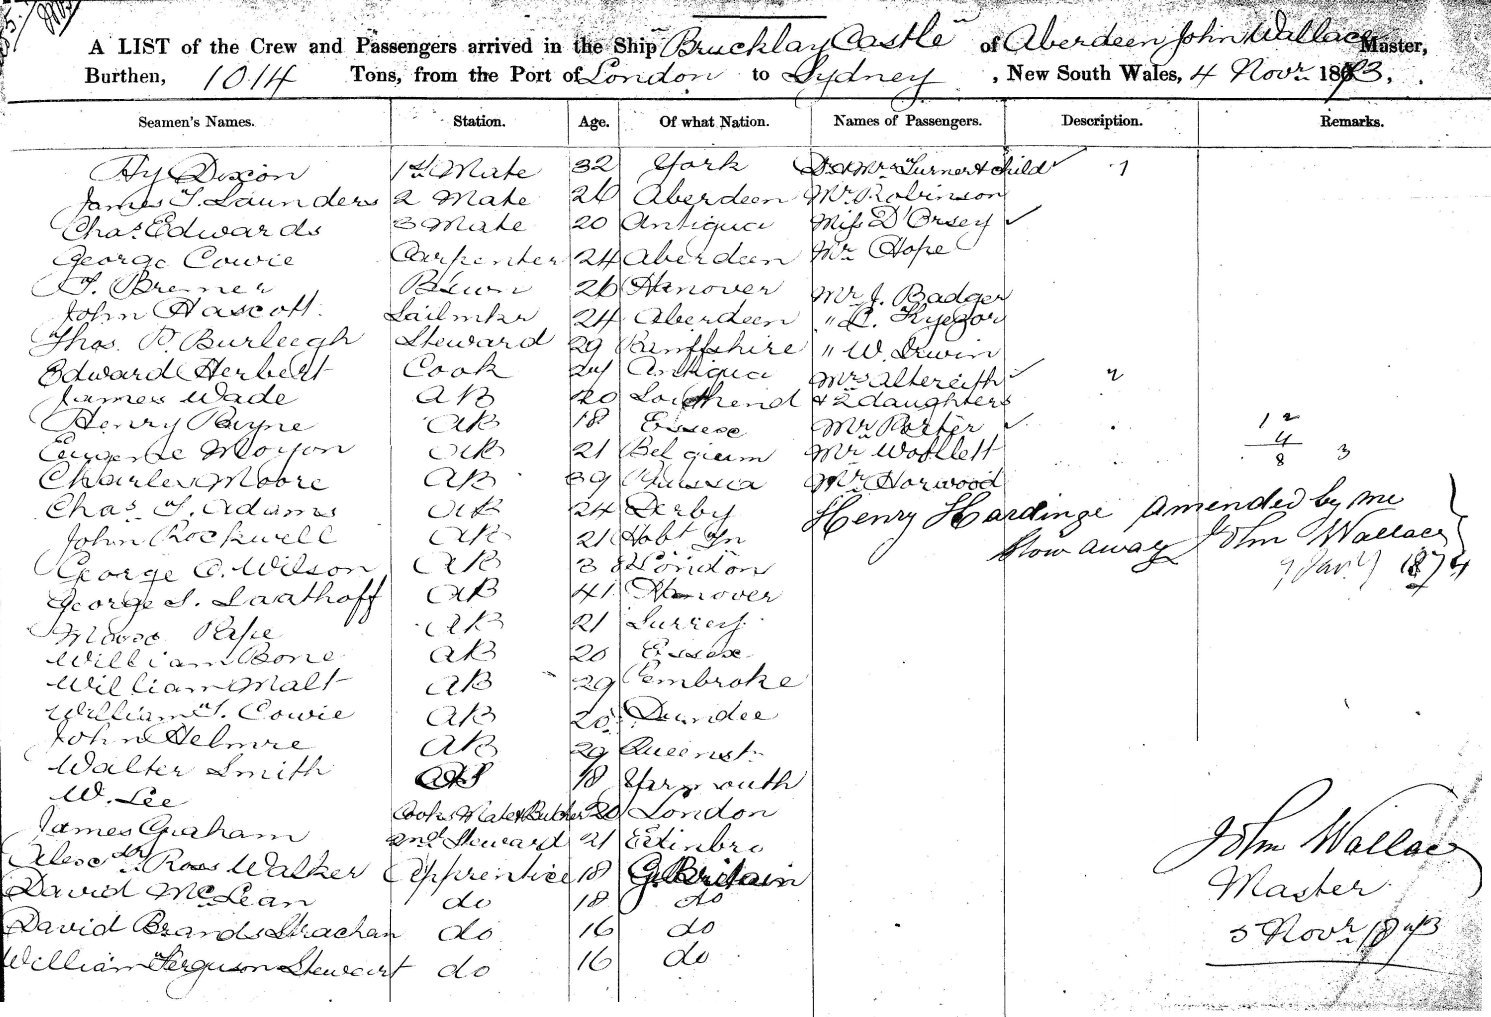 A LIST of the Crew and Passengers arrived in the Ship Brucklay Castle of Aberdeen John Wallace Master,
Burthen, 1014 Tons, from the Port of London to Sydney, New South Wales, 4 Novr 1873.
Seamen's Names. Station. Age. Of what Nation. Names of Passengers. Description. Remarks.
Hy Dixon 1st Mate 32 York Dr & Mrs Turner & child 1
James T. Saunders 2 Mate 26 Aberdeen Mr Robinson
Chas. Edwards 3 Mate 20 Antigua Miss D'Orsey
George Cowie Carpenter 24 Aberdeen Mr Hope
Bremer Bsun 26 Hanover Mr J. Badger
John Hascott Sailmkr 24 Aberdeen "
Thos. P. Burleegh Steward 29 Banffshire " W. Irwin
Edward Herbert Cook 24 Antigua Mrs 2
James Wade AB 20 Southend & 2 daughters
Henry Payne AB 18 Essex Mr Porter 12
Eugene Moyon AB 21 Belgium Mr Wolllett 4
8 3
Charles Moore AB 39 Russia Mr Horwood
Chas. T. Adams AB 24 Derby Henry Hardinge amended by me
John Rockwell AB 21 Hobt Tn Stow away John Wallace
George C. Wilson AB 38 London 7 Jany 1874
George S. Saathoff AB 41 Hanover
Pepe AB 21 Surrey
William Bone AB 20 Essex
William Malt AB 29 Pembroke
William T. Cowie AB 20 Dundee
John Helmre AB 29 Queenst
Walter Smith AB 18 Yarmouth
W. Lee Cooks Mate & Butcher 20 London
James Graham 2nd Steward 21 Edinbro
Alexdr Ross Walker Apprentice 18 G. Britain
David McLean do 18 do
David Brands Strachan do 16 do
William Ferguson Stewart do 16 do
John Wallace
Master
5 Novr 1873